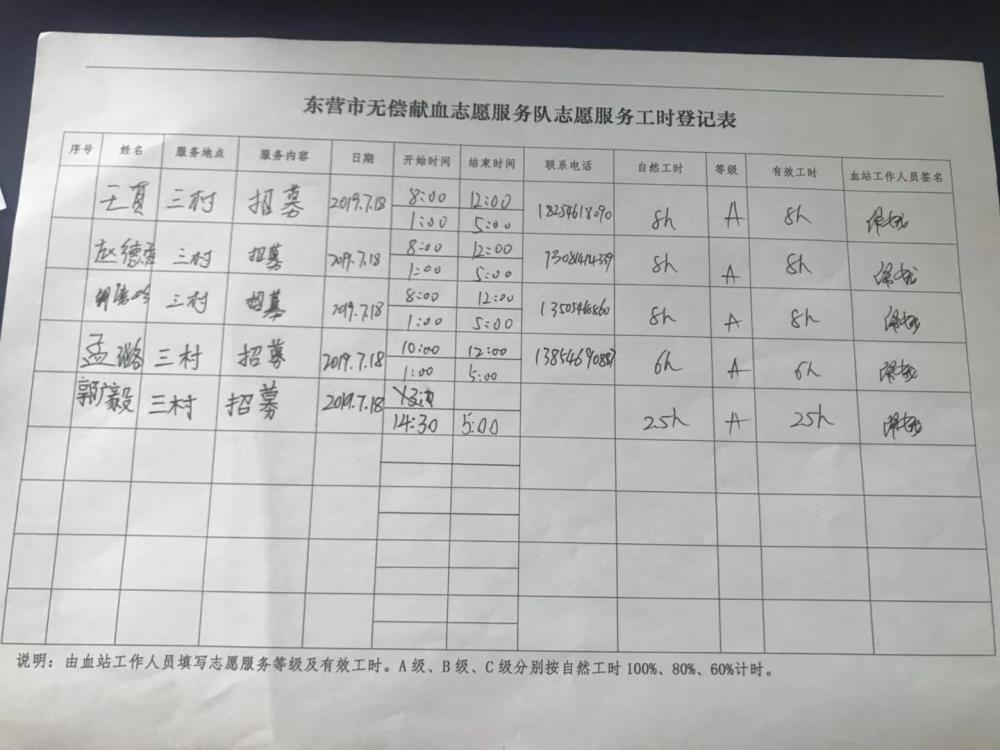 东营市无偿献血志愿服务队志愿服务工时登记表
序号 姓名 服务地点 服务内容 日期 开始时间 结束时间 联系电话 自然工时 等级 有效工时 血站工作人员签名
王夏 三村 招募 2019.7.18 8:00 12:00 18254618090 8h A 8h
1:00 5:00
赵德 三村 招募 2019.7.18 8:00 12:00 8h A 8h
1:00 5:00
三村 招募 2019.7.18 8:00 12:00 8h A 8h
1:00 5:00
孟璐 三村 招募 2019.7.18 10:00 12:00 6h A 6h
1:00 5:00
郭广毅 三村 招募 2019.7.18
14:30 5:00 25h A 25h
说明：由血站工作人员填写志愿服务等级及有效工时。A级、B级、C级分别按自然工时100%、80%、60%计时。